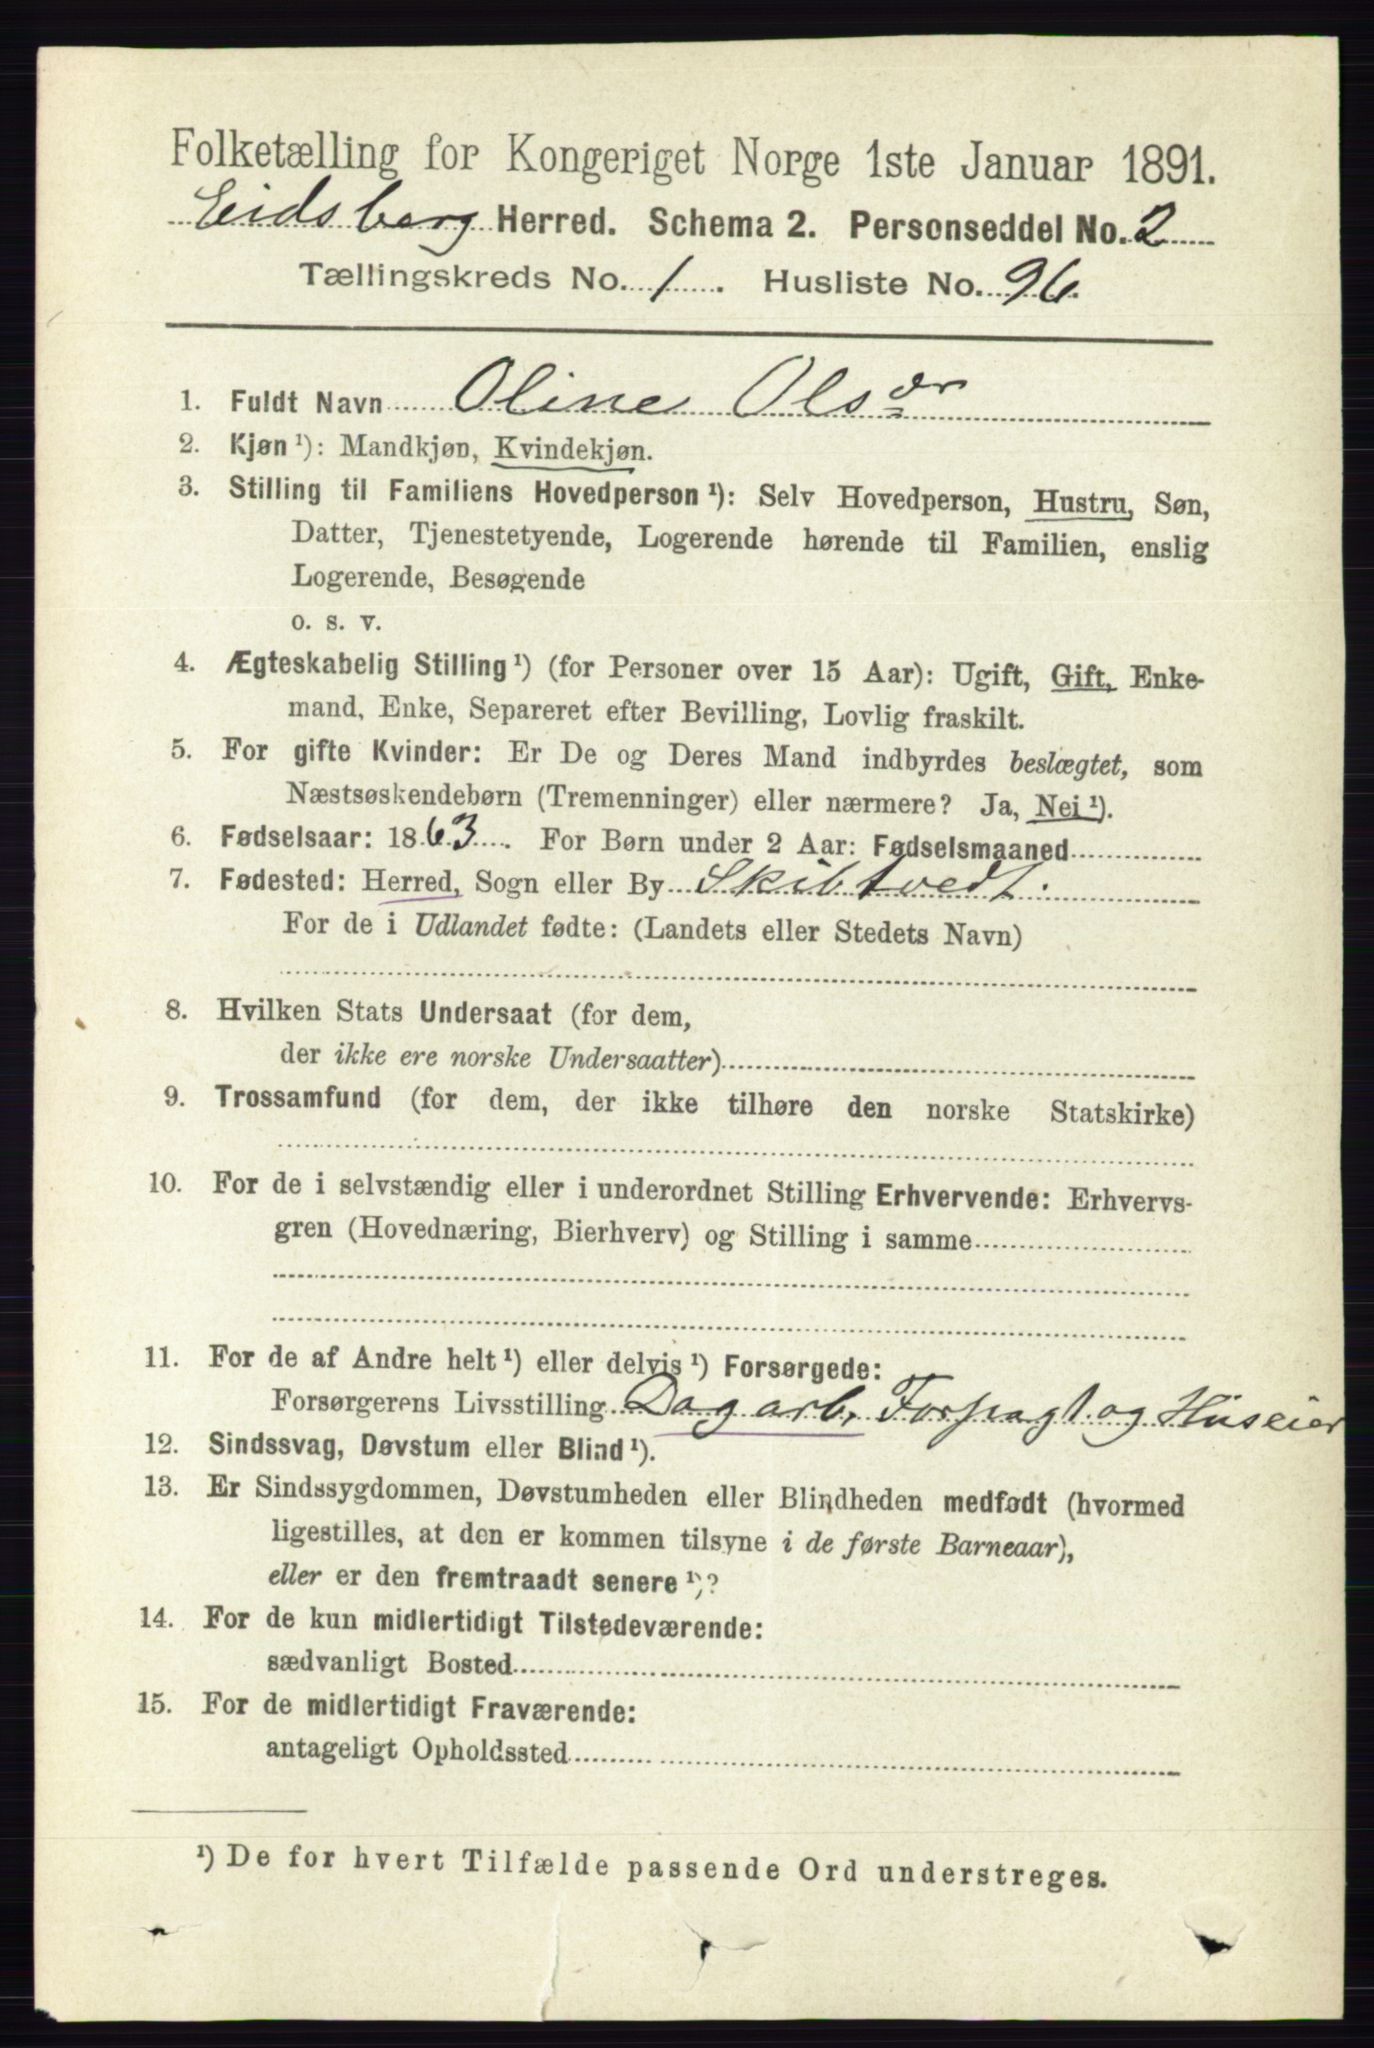 Folketælling for Kongeriget Norge 1ste Januar 1891.
Eidsberg Herred. Schema 2. Personseddel No. 2
Tællingskreds No. 1. Husliste No. 96.
1. Fuldt Navn Oline Olsdr
2. Kjøn ¹): Mandkjøn, Kvindekjøn.
3. Stilling til Familiens Hovedperson ¹): Selv Hovedperson, Hustru, Søn,
Datter, Tjenestetyende, Logerende hørende til Familien, enslig
Logerende, Besøgende
o. s. v.
4. Ægteskabelig Stilling ¹) (for Personer over 15 Aar): Ugift, Gift, Enke-
mand, Enke, Separeret efter Bevilling, Lovlig fraskilt.
5. For gifte Kvinder: Er De og Deres Mand indbyrdes beslægtet, som
Næstsøskendebørn (Tremenninger) eller nærmere? Ja, Nei ¹).
6. Fødselsaar: 1863. For Børn under 2 Aar: Fødselsmaaned
7. Fødested: Herred, Sogn eller By Skibtvedt.
For de i Udlandet fødte: (Landets eller Stedets Navn)
8. Hvilken Stats Undersaat (for dem,
der ikke ere norske Undersaatter)
9. Trossamfund (for dem, der ikke tilhøre den norske Statskirke)
10. For de i selvstændig eller i underordnet Stilling Erhvervende: Erhvervs-
gren (Hovednæring, Bierhverv) og Stilling i samme
11. For de af Andre helt ¹) eller delvis ¹) Forsørgede:
Forsørgerens Livsstilling Dagarb, Forpagt. og Huseier
12. Sindssvag, Døvstum eller Blind ¹).
13. Er Sindssygdommen, Døvstumheden eller Blindheden medfødt (hvormed
ligestilles, at den er kommen tilsyne i de første Barneaar),
eller er den fremtraadt senere ¹)?
14. For de kun midlertidigt Tilstedeværende:
sædvanligt Bosted
15. For de midlertidigt Fraværende:
antageligt Opholdssted
¹) De for hvert Tilfælde passende Ord understreges.